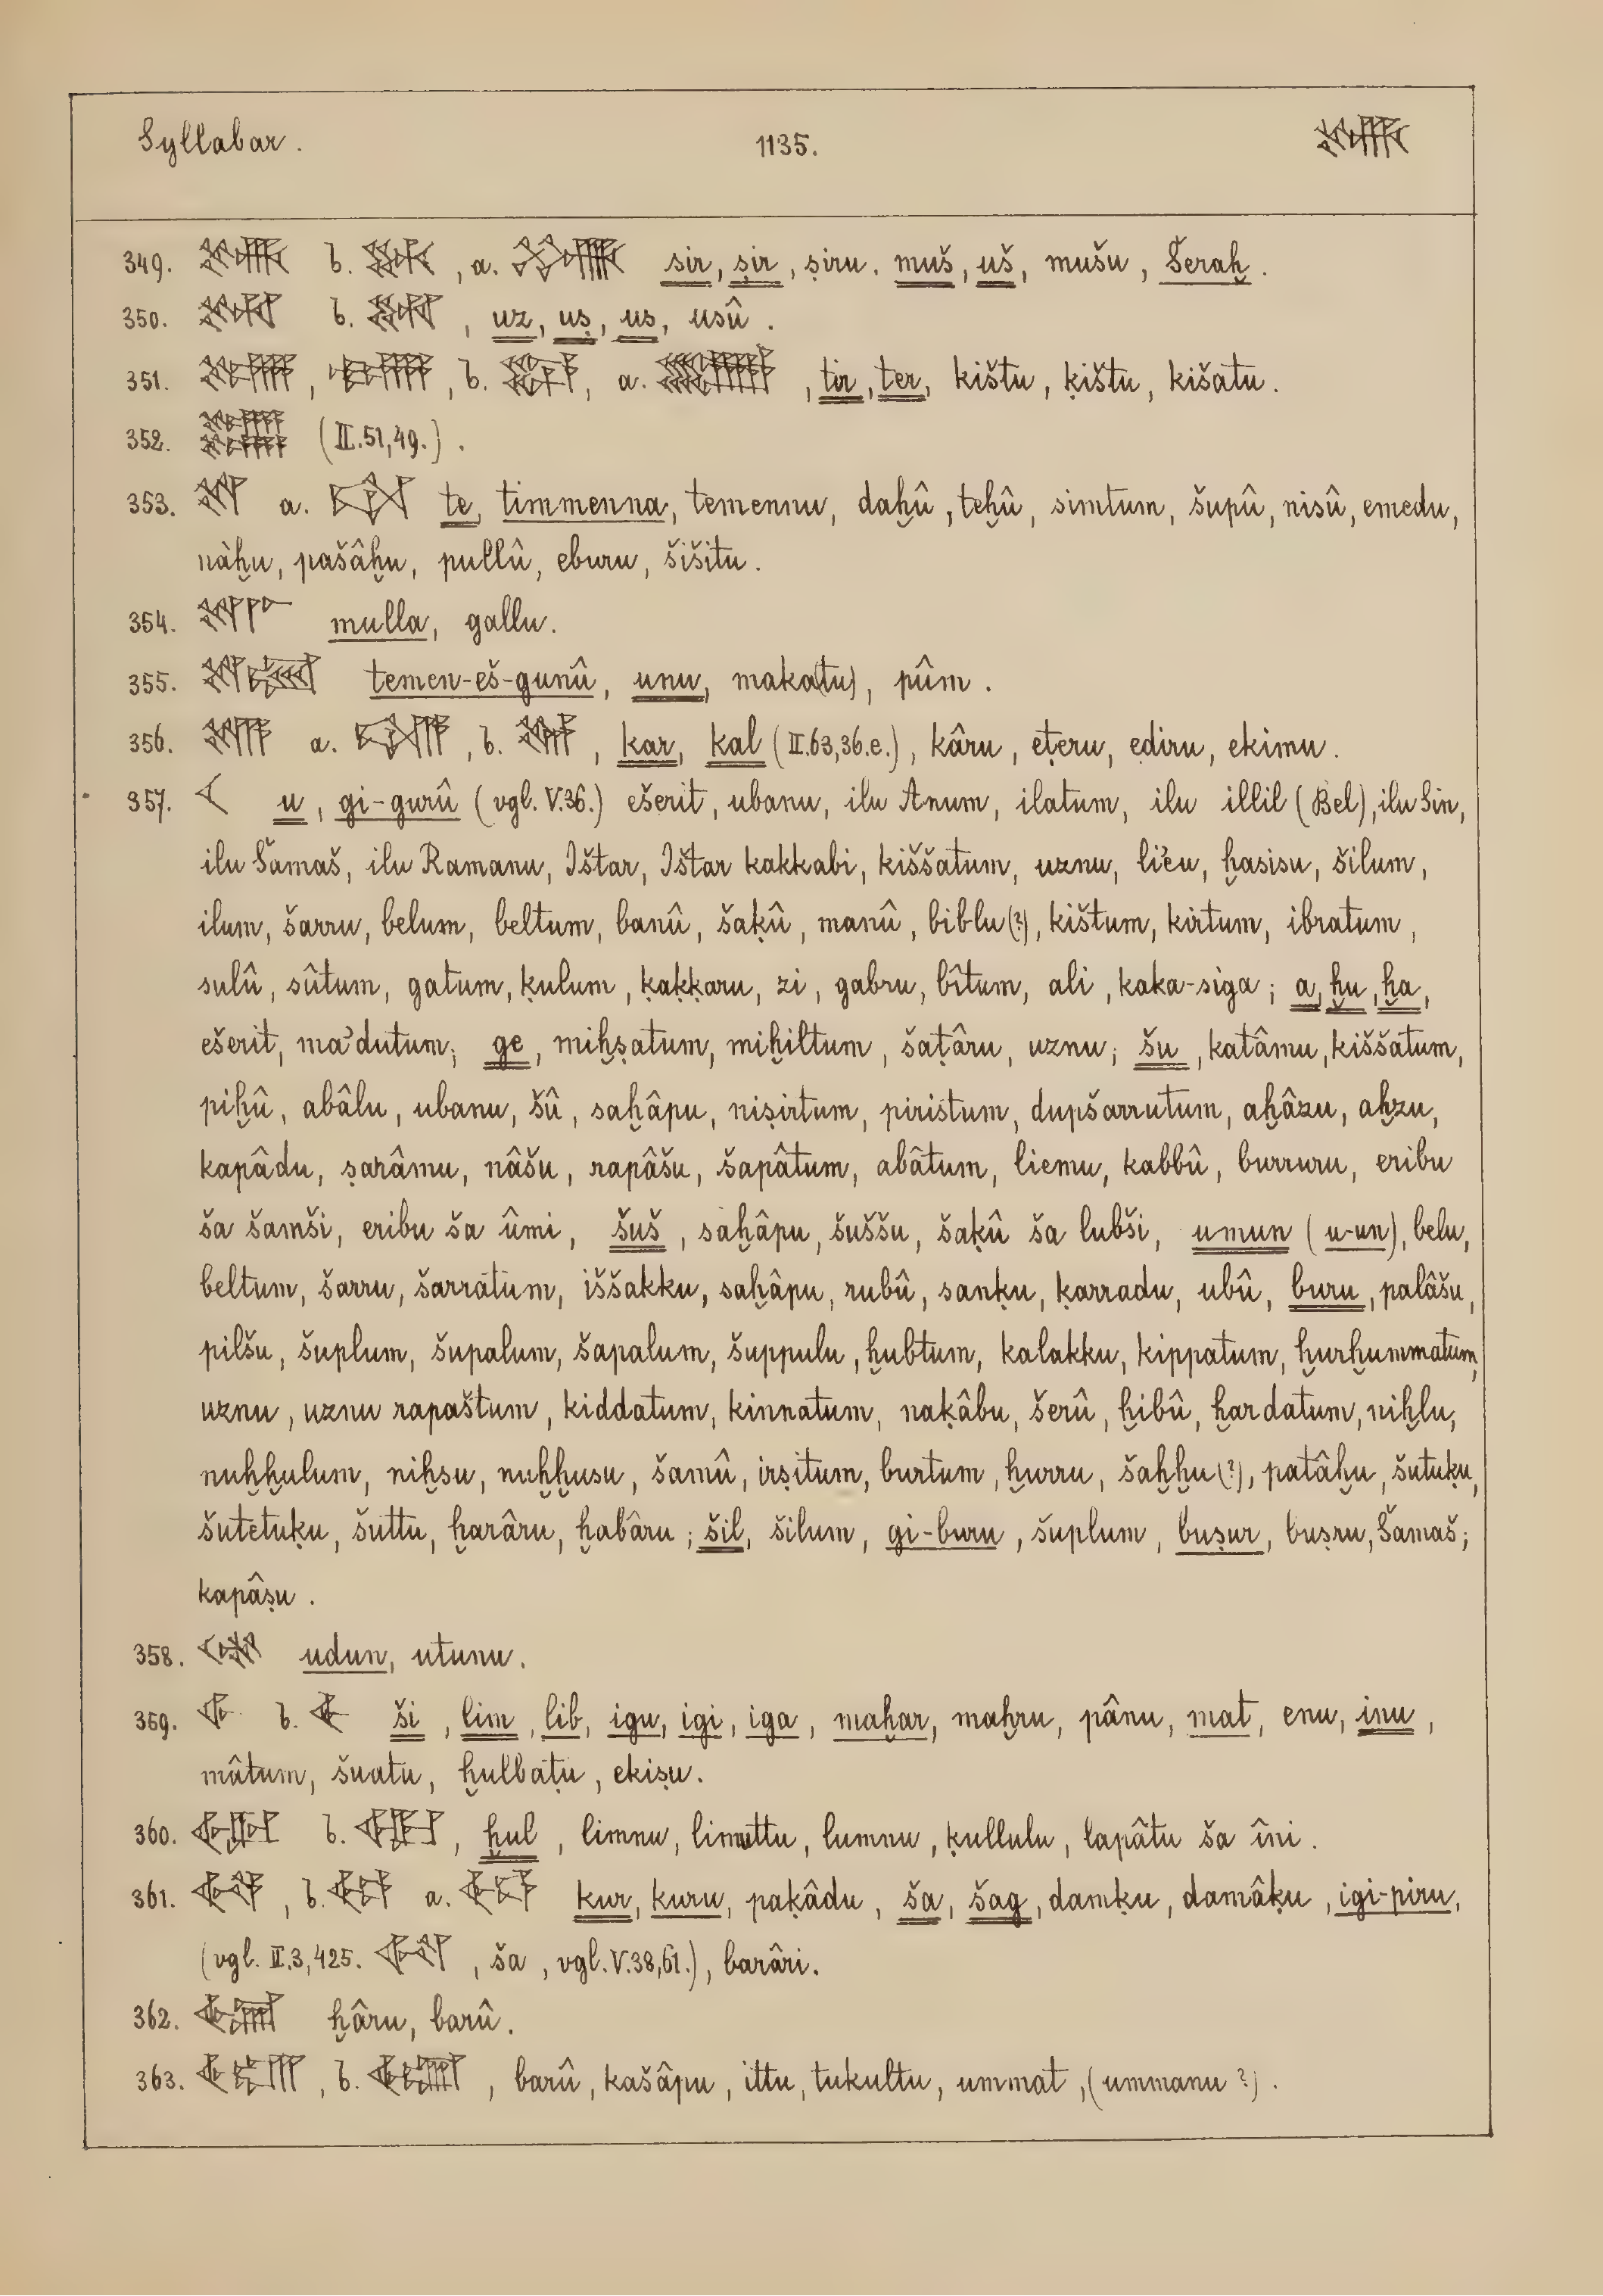 Syllabar. 1135.
349. b. , a. sir, ṣir, ṣiru. muš, uš, mušu, Šeraḫ.
350. b. , uz, uṣ, us, usû.
351. , , b. , a. , tir, ter, kištu, ḳištu, kišatu.
352. (II.51,49.).
353. a. te, timmenna, temennu, daḫû, teḫû, simtum, šupû, nisû, emedu,
nàḫu, pašâḫu, pullû, eburu, šišitu.
354. mulla, gallu.
355. temen-eš-gunû, unu, maka(tu), pûm.
356. a. , b. , kar, kal (II.63,36.e.), kâru, eṭeru, ediru, ekimu.
357. u, gi-gurû (vgl. V.36.) ešerit, ubanu, ilu Anum, ilatum, ilu illil (Bel), ilu Sin,
ilu Šamaš, ilu Ramanu, Ištar, Ištar kakkabi, kiššatum, uznu, ḫasisu, šilum,
ilum, šarru, belum, beltum, banû, šaḳû, manû, biblu(?), kištum, kirtum, ibratum,
sulû, sûtum, gatum, ḳulum, ḳaḳḳaru, zi, gabru, bîtum, ali, kaka-siga; a, ḫu, ḫa,
ešerit, ma'dutum; ge, miḫṣatum, miḫiltum, šaṭâru, uznu; šu, katâmu, kiššatum,
piḫû, abâlu, ubanu, šû, saḫâpu, niṣirtum, piristum, dupšarrutum, aḫâzu, aḫzu,
kapâdu, ṣarâmu, nâšu, rapâšu, šapâtum, abâtum, liemu, kabbû, burruru, eribu
ša šamši, eribu ša ûmi, šuš, saḫâpu, šuššu, šaḳû ša lubši, umun (u-un), belu,
beltum, šarru, šarratum, iššakku, saḫâpu, rubû, sanḳu, ḳarradu, ubû, buru, palâšu,
pilšu, šuplum, šupalum, šapalum, šuppulu, ḫubtum, kalakku, kippatum, ḫurḫummatum,
uznu, uznu rapaštum, kiddatum, kinnatum, naḳâbu, šerû, ḫibû, ḫardatum, niḫlu,
nuḫḫulum, niḫsu, nuḫḫusu, šamû, irṣitum, burtum, ḫurru, šaḫḫu(?), patâḫu, šutuḳu,
šutetuḳu, šuttu, ḫarâru, ḫabâru; šil, šilum, gi-buru, šuplum, buṣur, buṣru, Šamaš;
kapâṣu.
358. udun, utunu.
359. b. ši, lim, lib, igu, igi, iga, maḫar, maḫru, pânu, mat, enu, inu,
mâtum, šuatu, ḫulbaṭu, ekiṣu.
360. b. , ḫul, limnu, limuttu, lumnu, ḳullulu, lapâtu ša îni.
361. , b. a. kur, kuru, paḳâdu, ša, šag, damḳu, damâḳu, igi-piru,
(vgl. II.3,425. , ša, vgl. V.38,61.), barâri.
362. ḫâru, barû.
363. , b. , barû, kašâpu, ittu, tukultu, ummat, (ummanu ?).